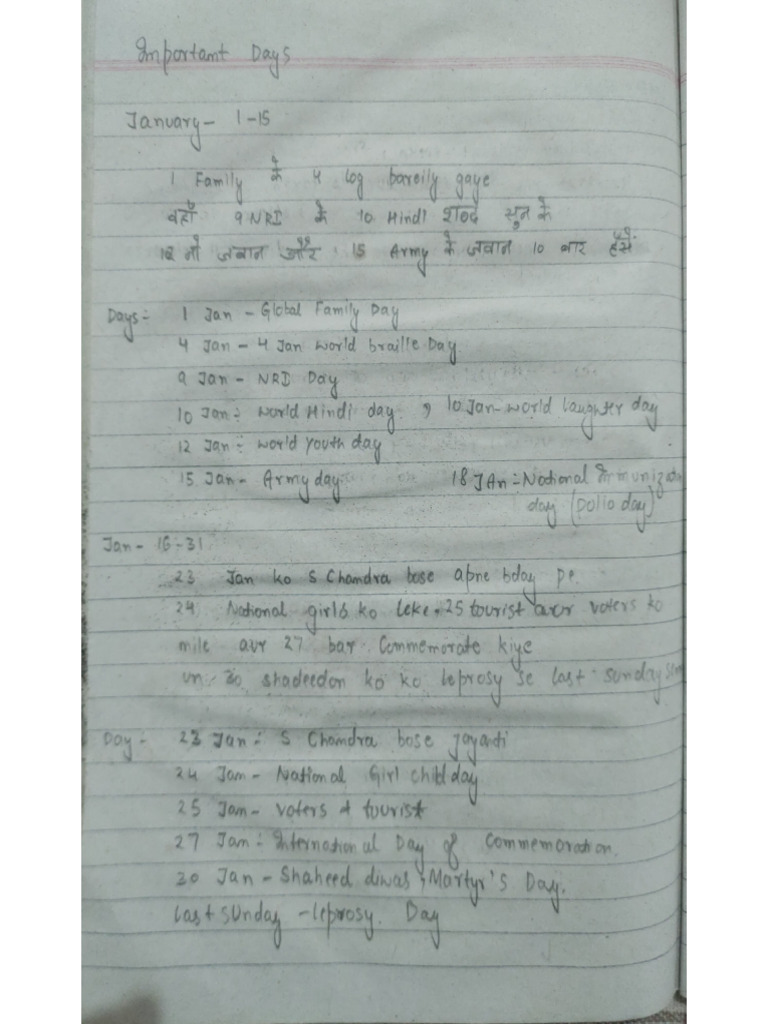 Important Days
January - 1-15
1 Family के 4 log bareily gaye
वहाँ 9 NRI के 10 Hindi शब्द सुन के
12 नौ जवान और 15 Army के जवान 10 बार हंसे
Days:- 1 Jan - Global Family Day
4 Jan - 4 Jan world braille Day
9 Jan - NRI Day
10 Jan:- World Hindi day , 10 Jan- world laughter day
12 Jan:- world youth day
15 Jan- Army day 18 JAn:- National Immunization
day (Polio day)
Jan - 16-31
23 Jan ko S Chandra bose apne bday pe
24 National girls ko leke 25 tourist aur voters ko
mile aur 27 bar Commemorate kiye
un 30 shadeedon ko ko leprosy se last sunday
Day:- 23 Jan:- S Chandra bose Jayanti
24 Jan - National Girl child day
25 Jan- voters & tourist
27 Jan:- International Day of Commemoration.
30 Jan - Shaheed diwas, Martyr's Day.
last sunday - leprosy. Day